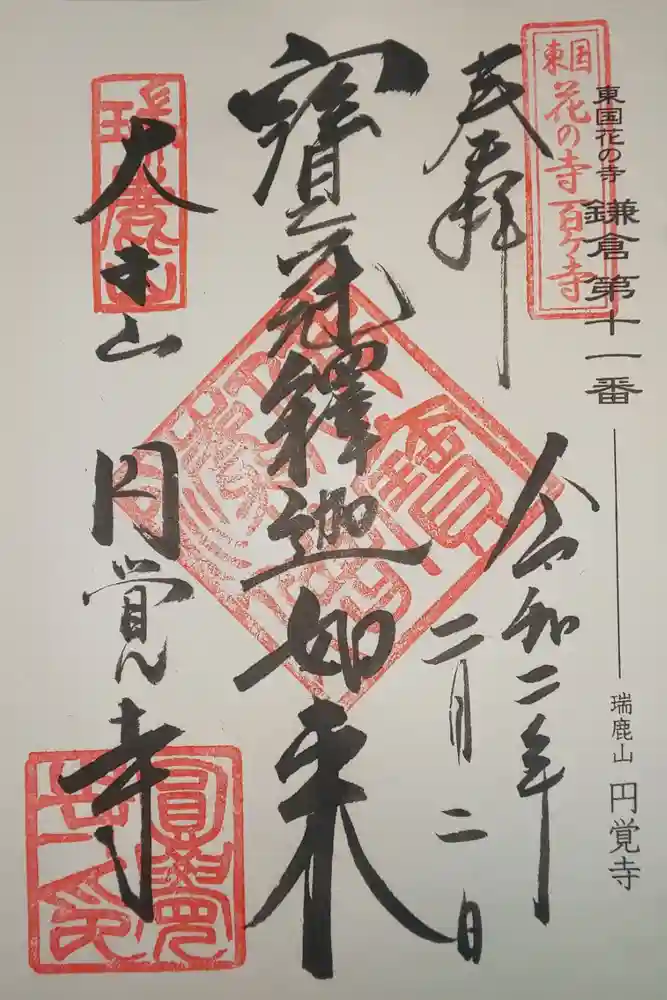 東国花の寺 鎌倉第十一番
瑞鹿山 円覚寺
東国
花の寺百ヶ寺
奉拝
令和二年
二月二日
寶冠釋迦如来
大本山
円覚寺
瑞鹿山